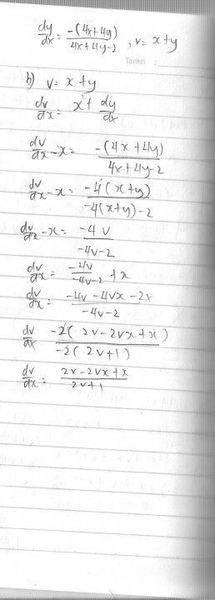 dy/dx = -(4x+4y)/4x+4y-2, v = x+y
Tarikh :
b) v = x+y
dv/dx = x + dy/dx
dv/dx - x = -(4x+4y)/4x+4y-2
dv/dx - x = -4(x+y)/-4(x+y)-2
dv/dx - x = -4v/-4v-2
dv/dx = -4v/-4v-2 + x
dv/dx = -4v-4vx-2x/-4v-2
dv/dx -2(2v-2vx+x)/-2(2v+1)
dv/dx = 2v-2vx+x/2v+1